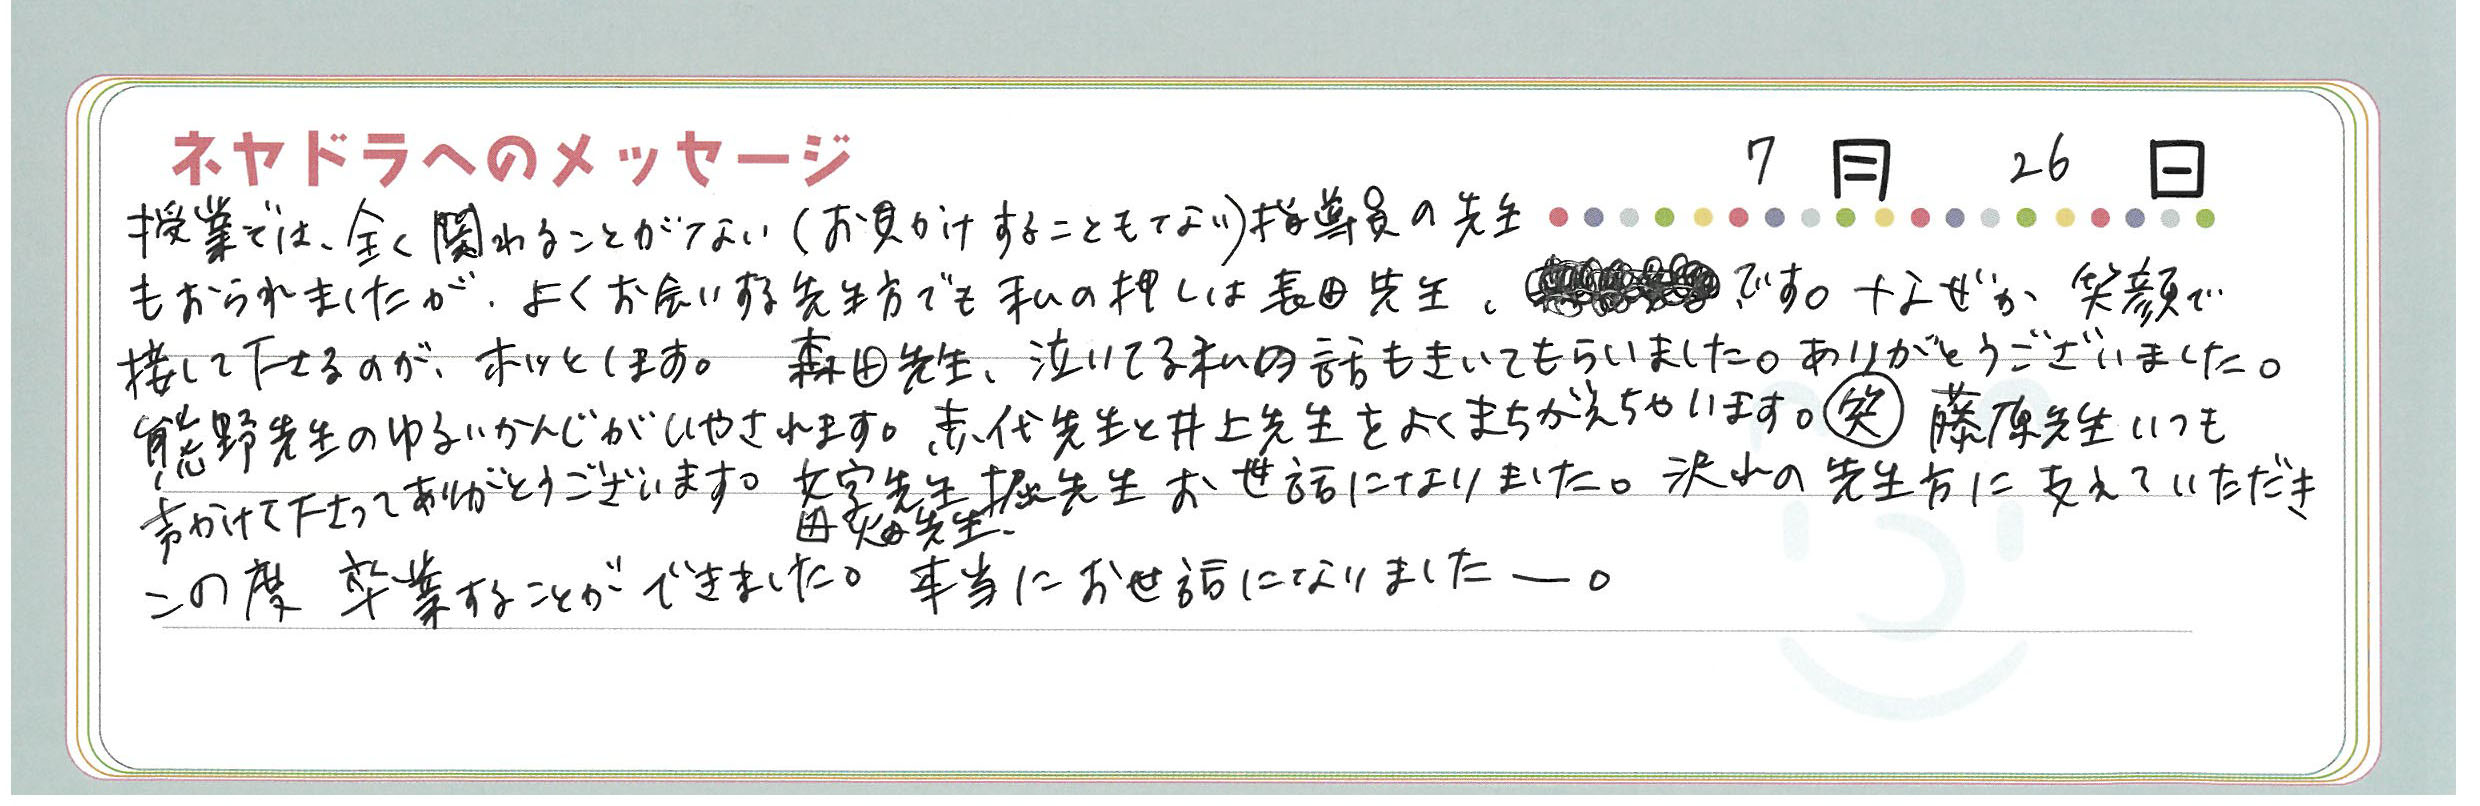 ネヤドラへのメッセージ
7月 26日
授業では、全く関わることがない(お見かけすることもない)指導員の先生
もおられましたが、よくお会いする先生方でも私の押しは長田先生、です。なぜか、笑顔で
接して下さるのが、ホッとします。 森田先生、泣いてる私の話もきいてもらいました。ありがとうございました。
熊野先生のゆるいかんじがいやされます。 先生と井上先生をよくまちがえちゃいます。笑 藤原先生いつも
声かけて下さってありがとうございます。 先生 堀先生 お世話になりました。沢山の先生方に支えていただき
田畑先生、
この度 卒業することができました。本当にお世話になりましたー。